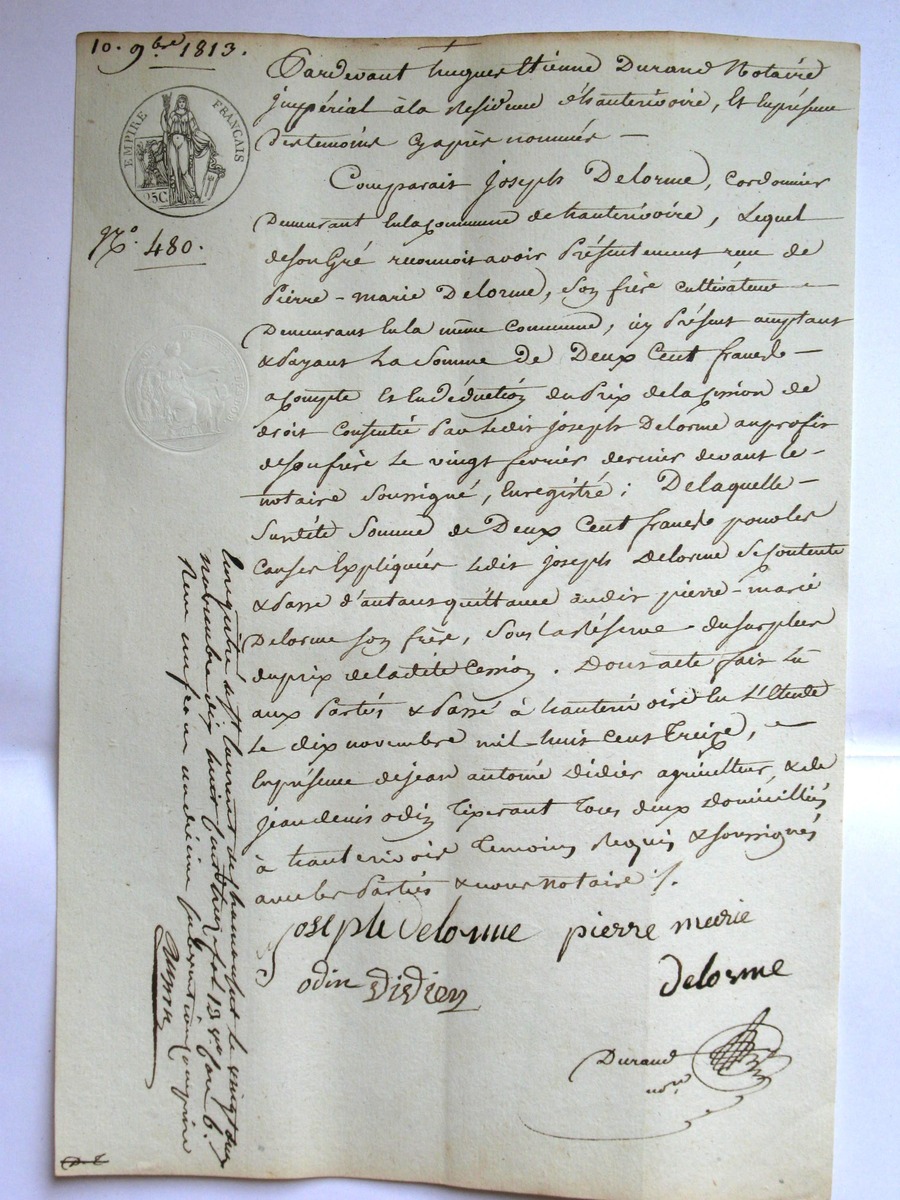 10. 9bre 1813.
EMPIRE FRANÇAIS
25C.
N.º 480.
Pardevant hugues Etienne Durand Notaire
jmpérial àla Residence d'hauterivoire, Et Enprésence
Destemoins cyaprès nommés —
Comparait joseph Delorme, cordonnier
Demeurant Enlacommune de hauterivoire, Lequel
desongré reconnoit avoir Présentement reçu de
Pierre-marie Delorme, son frère cultivateur —
Demeurant Enla même commune, icy Présent acceptant
& Payant La Somme de Deux Cent francs —
acompte Et Endéduction du Prix delacession de
droit Consentie Par Ledit joseph Delorme auprofit
desonfrère Le vingt fevrier dernier devant le-
notaire Soussigné, Enregistré; Delaquelle —
Susdite Somme de Deux Cent francs pourles
Causes Expliquées Ledit joseph Delorme Secontente
& Passe d'autant quittance audit pierre-marie
Delorme son frère, Sous LaRéserve dusurplus
duprix deladite Cession. Dont acte fait Lu
aux Parties & Passé à hauterivoire En L'Etude
Le dix novembre mil-huit cent Treize, —
Enprésence dejean antoine Didier agriculteur, & de
jean denis odin Tixerant Tous deux Domiciliés
à hauterivoire Temoins Requis & Soussignés
avec les Parties & nous notaire ./.
joseph delorme pierre marie
odin didier delorme
Durand
nore
Enregistré à St Laurent de chamousset le vingt deux
novembre dix huit cent treize fol 13 vo Case 6.
Recu un franc un décime subvention comprise